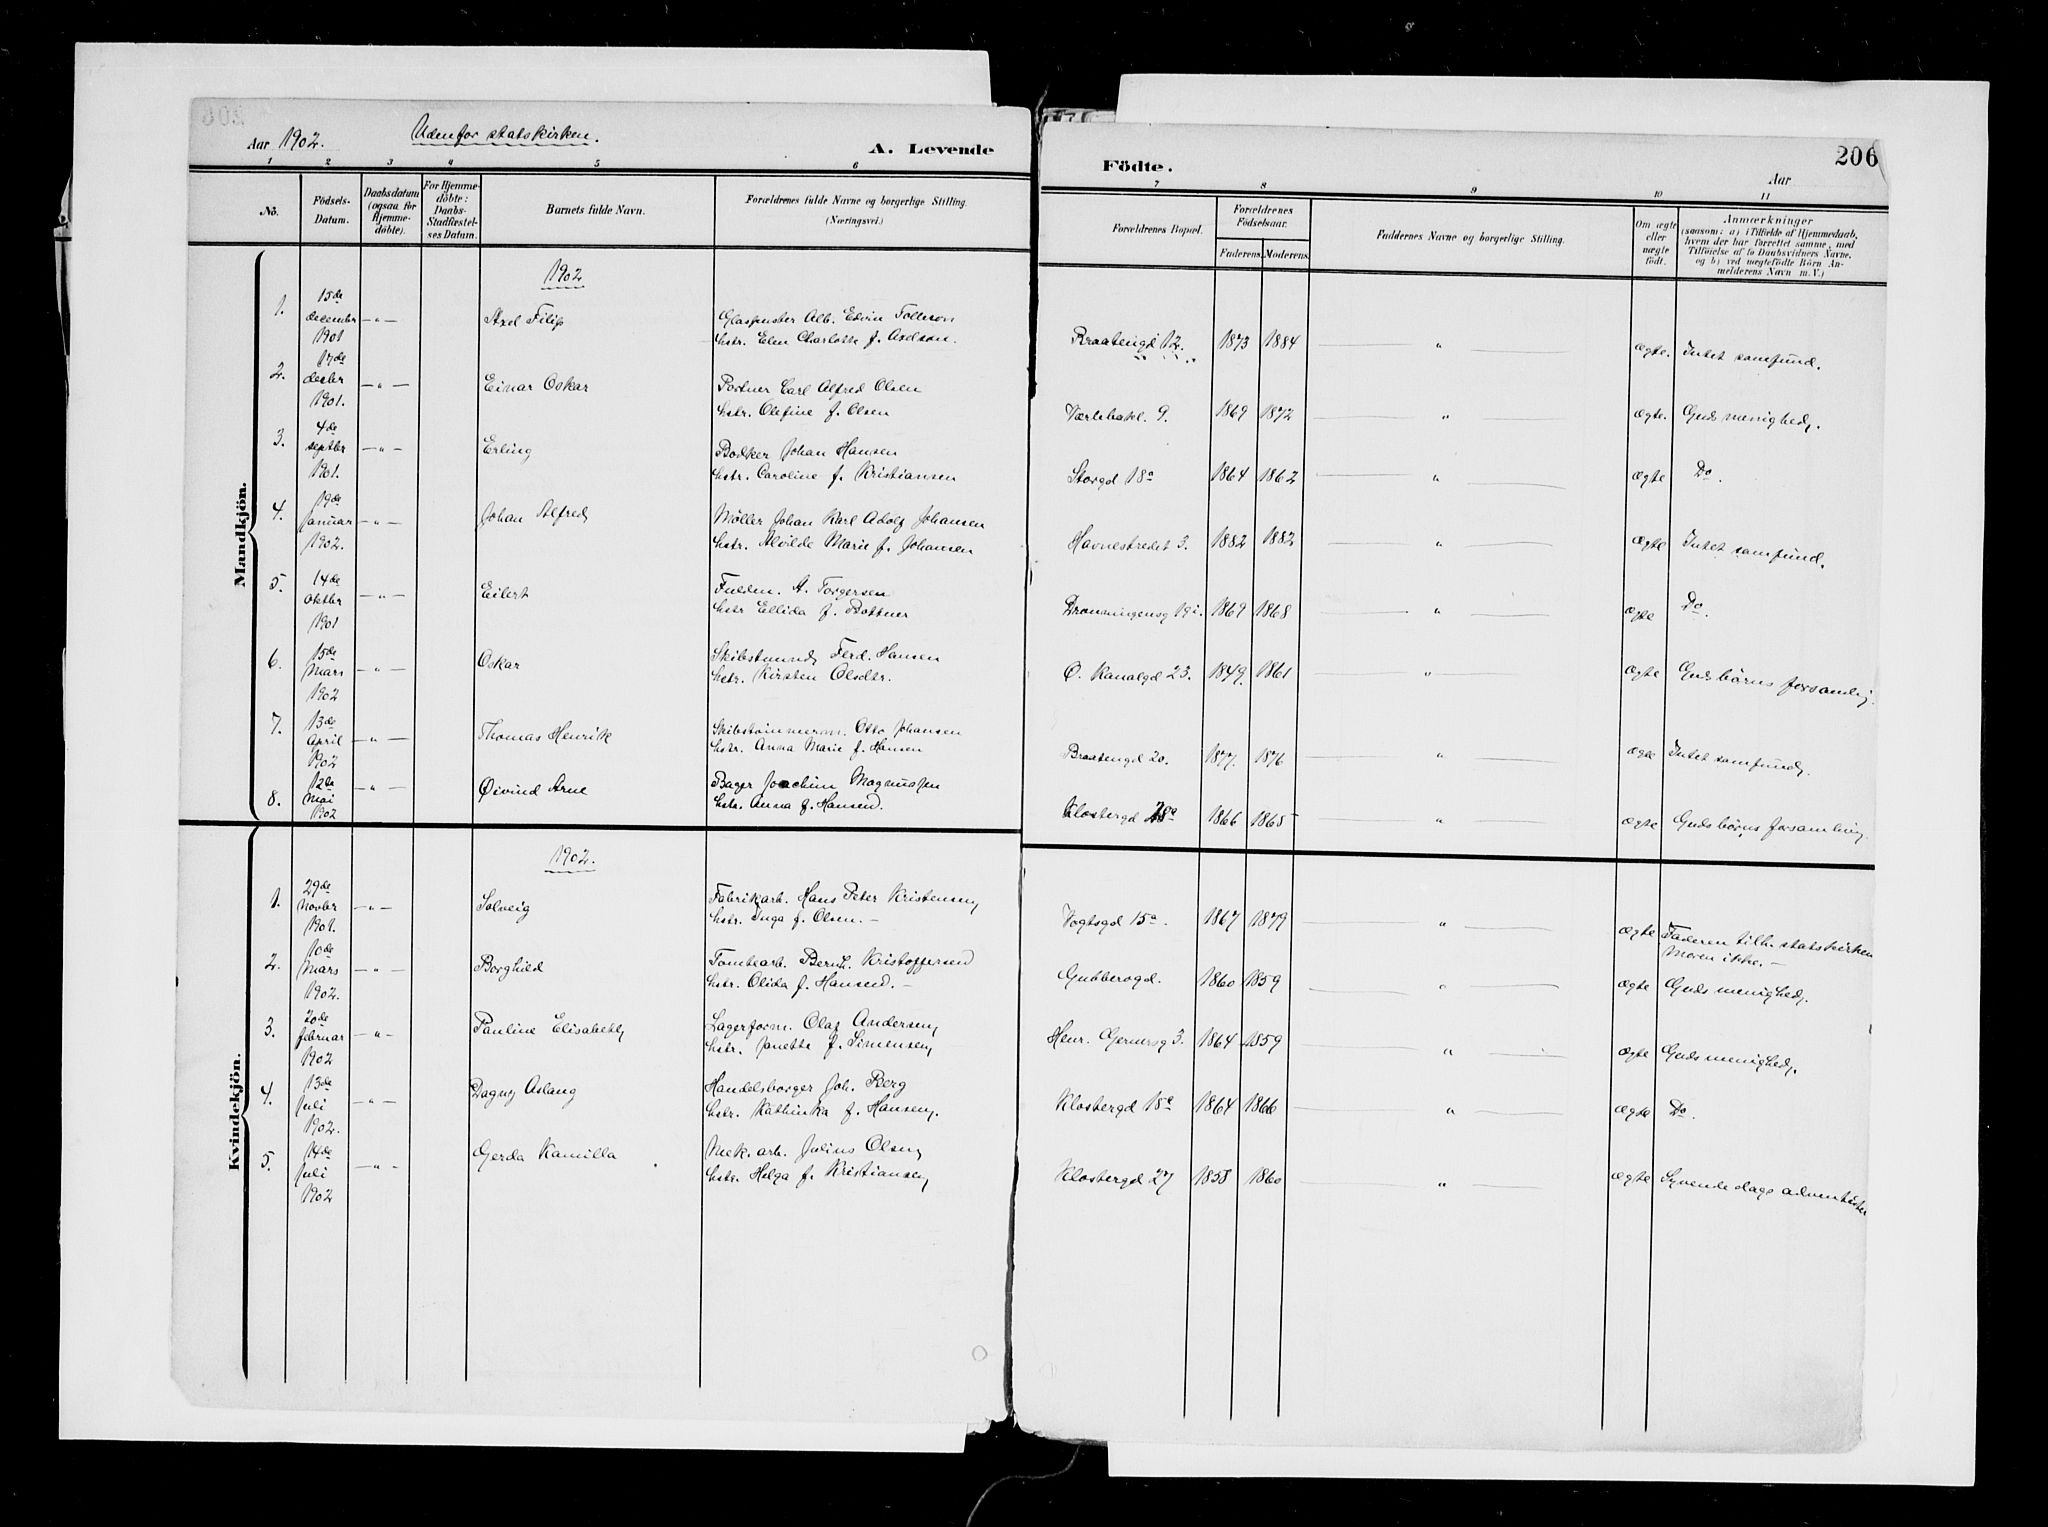 206
Aar 1902.
Udenfor statskirken.
A. Levende
Födte.
Aar
1 2 3 4 5 6 7 8 9 10 11
No.
Födsels-
Datum.
Daabsdatum
(ogsaa for
Hjemme-
döbte).
For Hjemme-
döbte:
Daabs-
Stadfæstel-
ses Datum.
Barnets fulde Navn.
Forældrenes fulde Navne og borgerlige Stilling.
(Næringsvei.)
Forældrenes Bopæl.
Forældrenes
Födselsaar.
Faderens. Moderens.
Faddernes Navne og borgerlige Stilling.
Om ægte
eller
uægte
födt.
Anmærkninger
(saasom: a) i Tilfælde af Hjemmedaab,
hvem der har forrettet samme, med
Tilföielse af to Daabsvidners Navne,
og b) ved uægtefödte Börn An-
melderens Navn m. V.)
Mandkjön.
1902
1. 15de december 1901 —"— Axel Filip
Glaspuster Alb. Edvin Tollesen
hstr. Elen Charlotte f. Axelsøn.
Braatengd 12. 1873 1884 " ægte. Intet samfund.
2. 17de decbr 1901. —"— Einar Oskar
Portner Carl Alfred Olsen
hstr. Olefine f. Olsen
9. 1869 1872 " ægte. Guds menighed.
3. 4de septbr 1901. —"— Erling
Bødker Johan Hansen
hstr. Caroline f. Kristiansen
Storgd 18a 1864 1862 " ægte Do.
4. 19de Januar 1902. —"— Johan Alfred
Møller Johan Karl Adolf Johansen
hstr. Alvilde Marie f. Johansen
Havnestredet 3. 1882 1882 " ægte Intet samfund.
5. 14de oktbr 1901 —"— Eilert
A. Torgersen
hstr Ellida f. Bottner
Dronningensg 19 1869 1868 " ægte Do.
6. 15de Mars 1902 —"— Oskar
Ferd. Hansen
hstr. Kirsten Olsdtr.
Ø. Kanalgd 23. 1849. 1861 " ægte Guds børns forsamling
7. 13de April 1902 —"— Thomas Henrik
Skibstømmerm. Otto Johansen
hstr. Anna Marie f. Hansen
Braatengd 20. 1877. 1876 " ægte Intet samfund.
8. 12de Mai 1902 —"— Øivind Arne
Bager Joachim Magnussen
hstr. Anna f. Hansen.
Klostergd 28a 1866 1865 " ægte Guds børns forsamling.
Kvindekjön.
1902.
1. 29de Novbr 1901. —"— Solveig
Fabrikarb. Hans Peter Kristensen
hstr. Inga f. Olsen. –
Vogtsgd 15a. 1867 1879 " ægte Faderen tilh. statskirken
Moren ikke. –
2. 10de Mars 1902. —"— Borghild
Tomtearb. Bernh. Kristoffersen
hstr. Olida f. Hansen. –
Gubberogd. 1860 1859 " ægte Guds menighed.
3. 20de februar 1902 —"— Pauline Elisabeth
Lagerform. Olaf Andersen
hstr. Janette f. Simensen
Henr. Gernersg 3. 1864 1859 " ægte Guds menighed.
4. 13de Juli 1902. —"— Dagny Aslaug
Handelsborger Joh. Berg
hstr. Kathinka f. Hansen.
Klostergd 18a 1864 1866 " ægte Do.
5. 14de Juli 1902 —"— Gerda Kamilla
Mek. arb. Julius Olsen
hstr. Helga f. Kristiansen
Klostergd 27 1858 1860 " ægte Syvende dags adventister